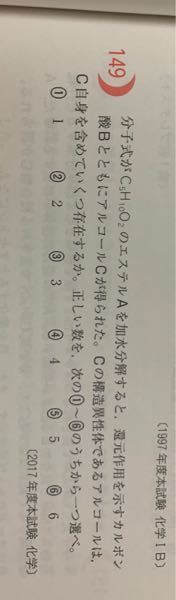 〔1997年度本試験 化学ⅠB〕
149 分子式がC₅H₁₀O₂のエステルAを加水分解すると，還元作用を示すカルボン
酸BとともにアルコールCが得られた。Cの構造異性体であるアルコールは，
C自身を含めていくつ存在するか。正しい数を，次の①～⑥のうちから一つ選べ。
① 1 ② 2 ③ 3 ④ 4 ⑤ 5 ⑥ 6
〔2017年度本試験 化学〕